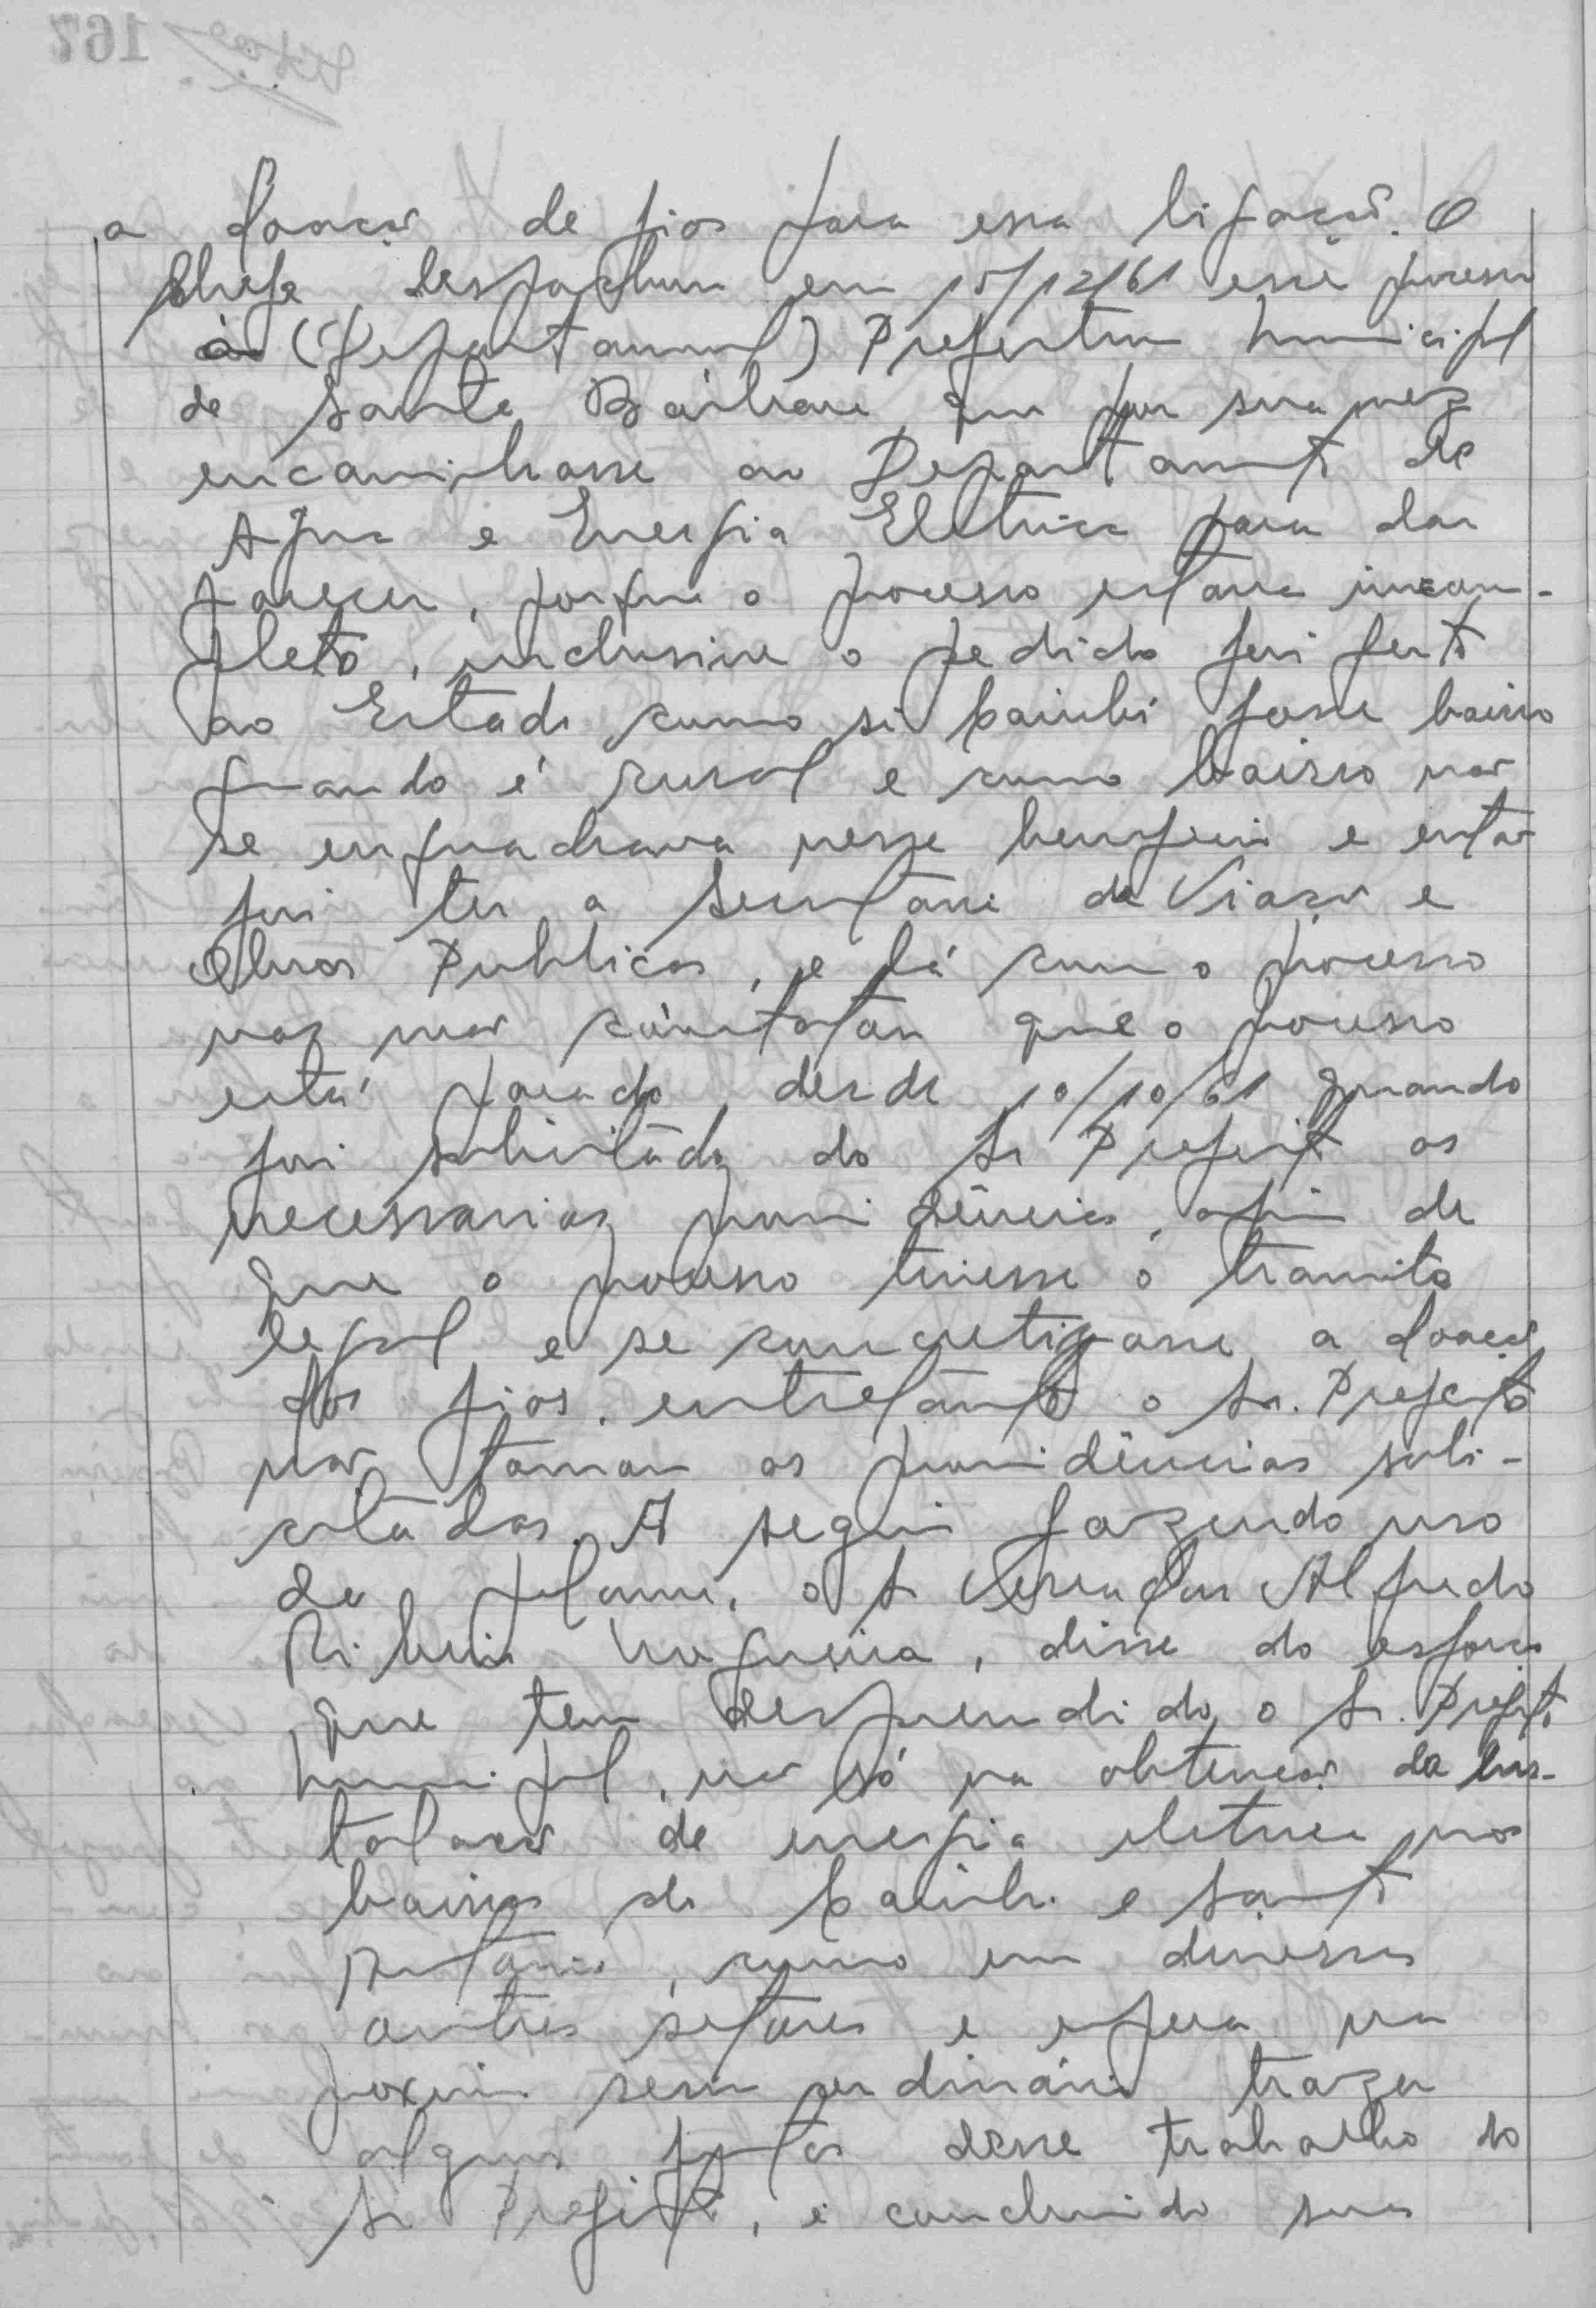 a doação de fios para essa ligação. O
Chefe despachou em 15/12/61 esse processo
à (Departamento) Prefeitura Municipal
de Santa Bárbara que por sua vez
encaminhasse ao Departamento de
Agua e Energia Eletrica para dar
parecer, porque o processo estava incom-
pleto, inclusive o pedido foi feito
ao Estado como si Caiubi fosse bairro
quando é rural e como bairro não
se enquadrava nesse beneficio e então
foi ter a Secretaria de Viação e
Obras Publicas, e lá com o processo
nas mãos constatou que o processo
está parado desde 10/10/61 quando
foi solicitado do Sr Prefeito as
necessarias providências, afim de
que o processo tivesse o tramite
legal e se concretizasse a doação
dos fios, entretanto o Sr. Prefeito
não tomou as providências soli-
citadas. A seguir fazendo uso
da palavra, o Sr Vereador Alfredo
Ribeiro Nogueira, disse do esforço
que tem despendido o Sr. Prefeito
Municipal, não só na obtenção da Ins-
talação de energia eletrica nos
bairros de Caiubi e Santo
Antonio, como em diversos
outros setores e espera na
proxima sessão ordinária trazer
alguns fatos desse trabalho do
Sr Prefeito, e concluindo sua